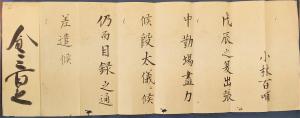 小林百哺
戊辰之夏出張
中勤場盡力
候段太儀ニ候
仍而目録之通
差遣候
金三百疋